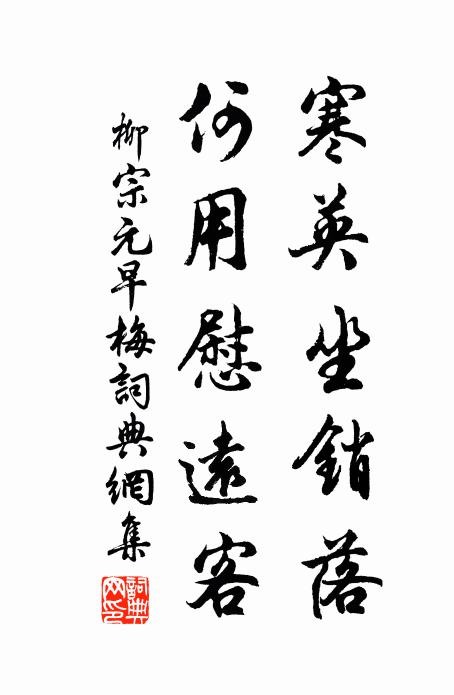 寒英坐銷落
何用慰遠客
柳宗元早梅詞典網集
詞典
网印